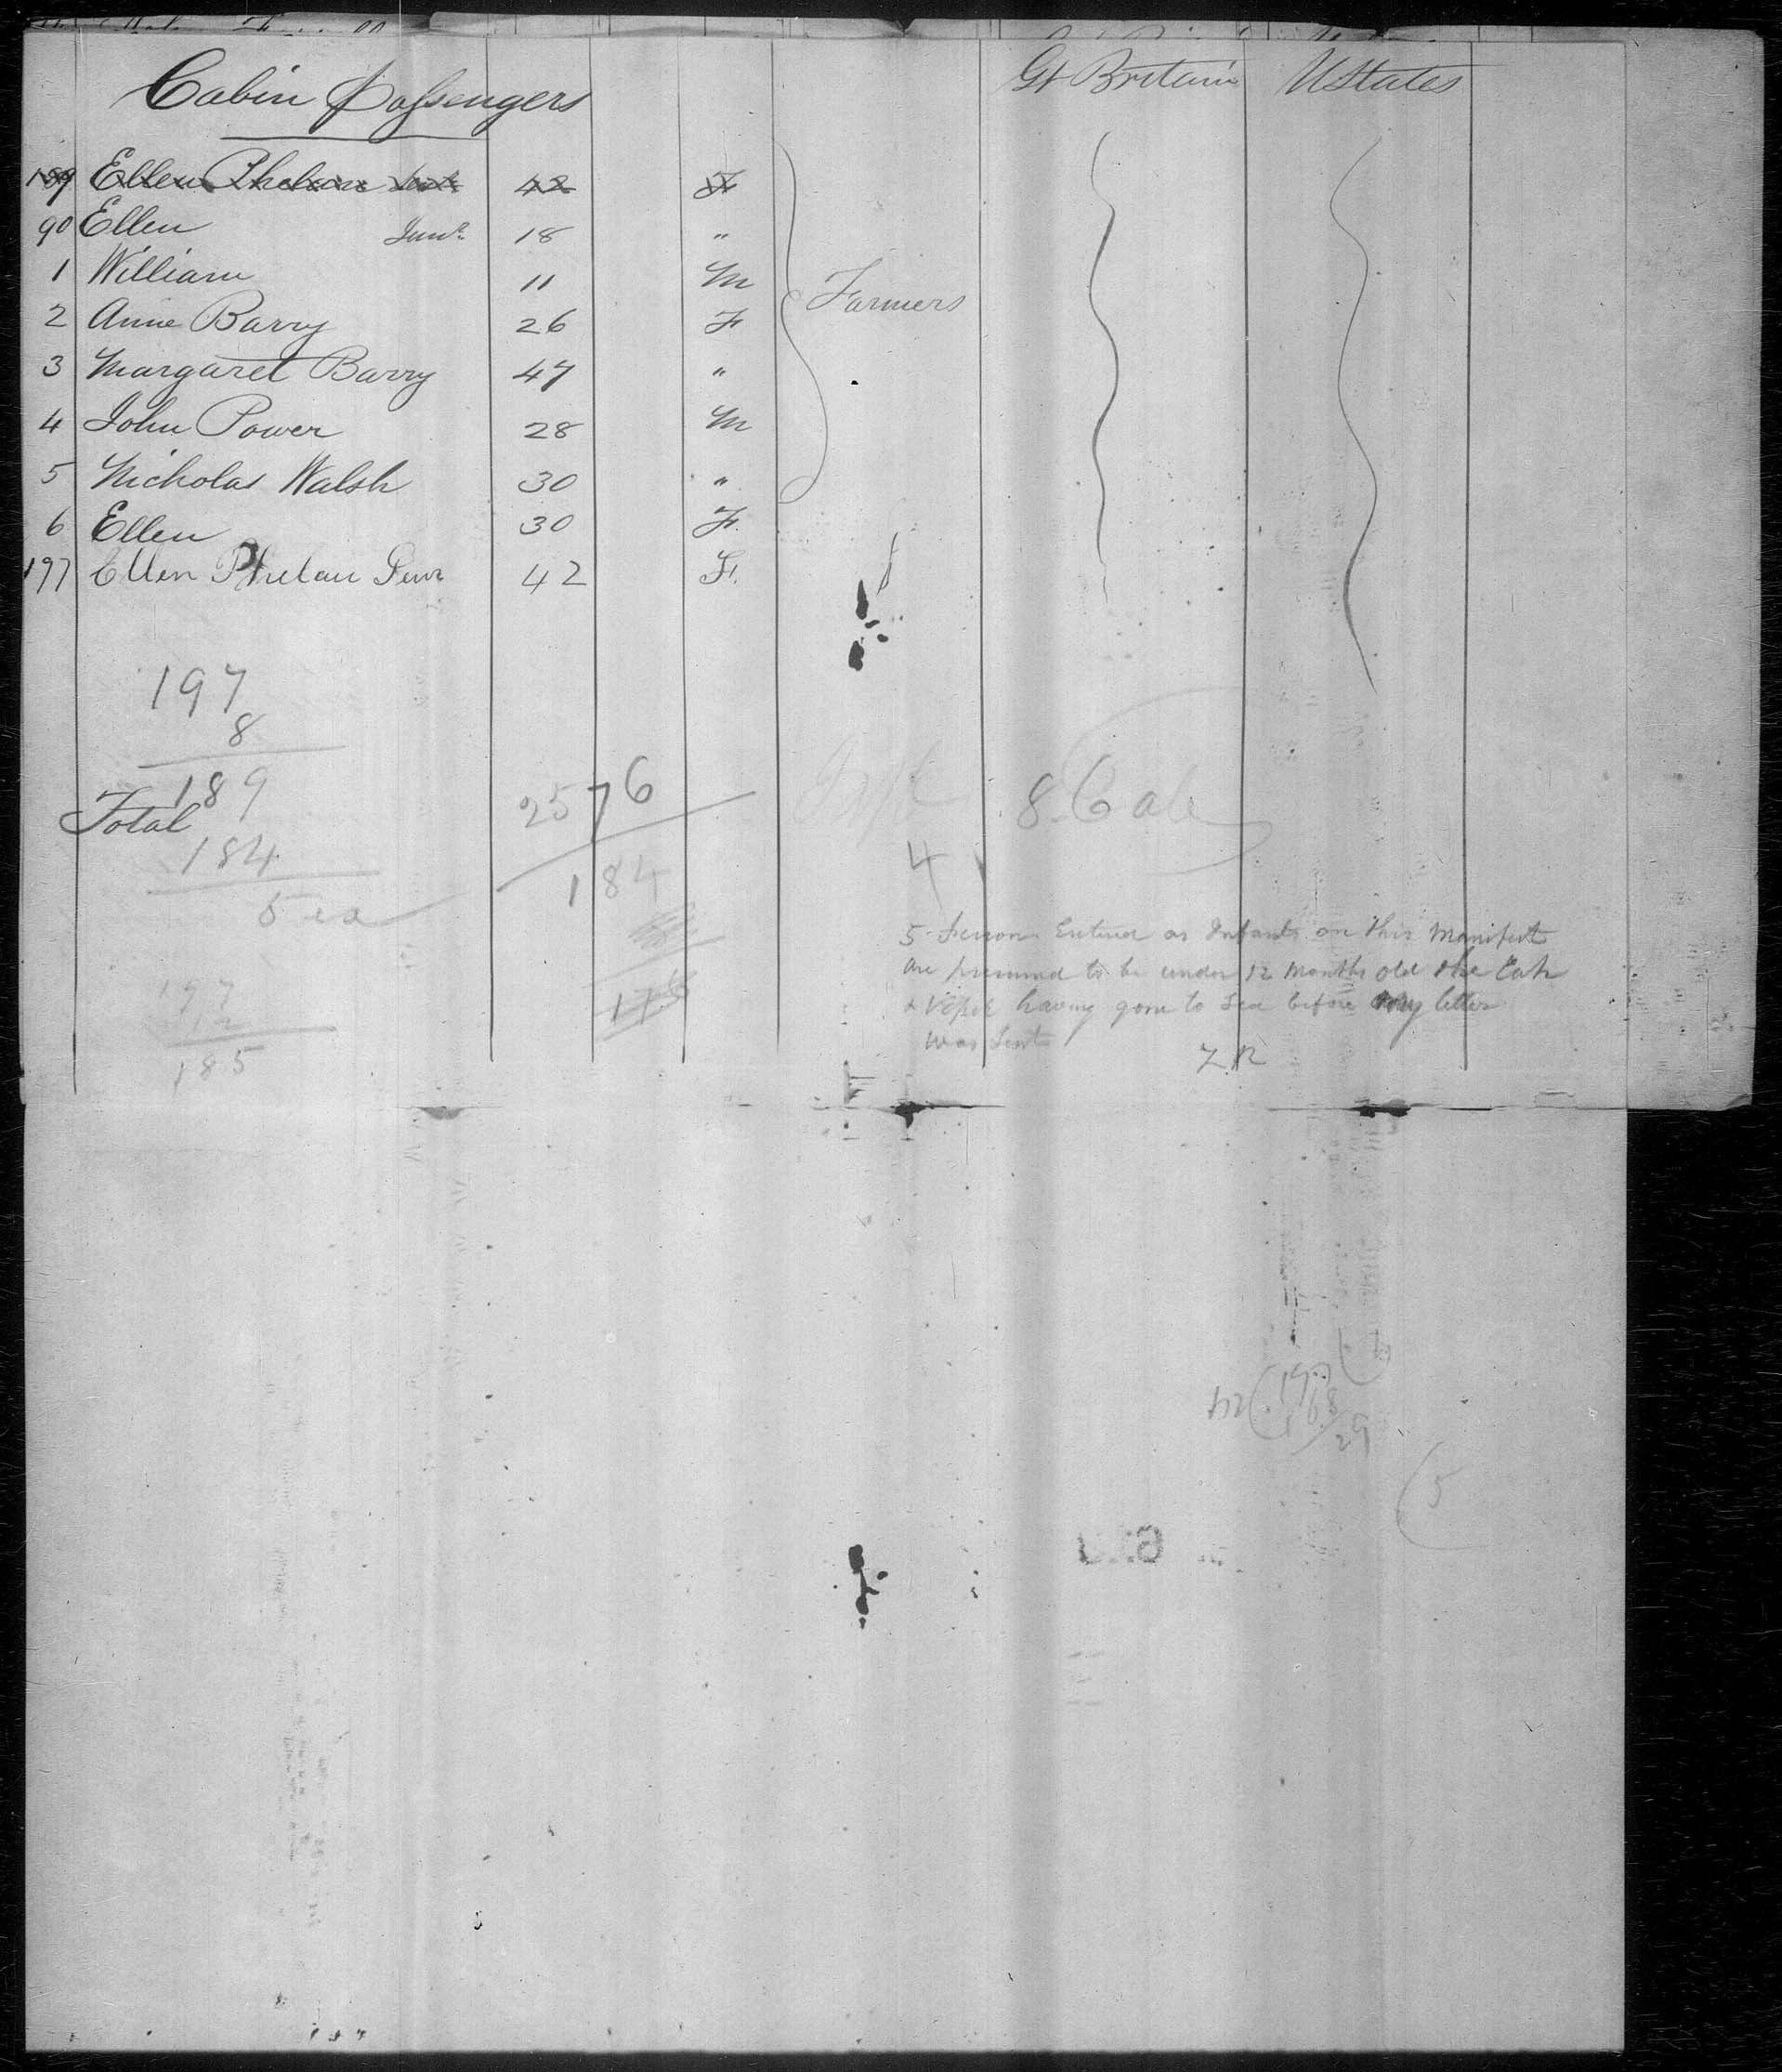 Cabin Passengers Gt Britain UStates
189 Ellen Phelan Senr 42 F
90 Ellen Junr 18 "
1 William 11 M
2 Anne Barry 26 F
Farmers
3 Margaret Barry 47 "
4 John Power 28 M
5 Nicholas Walsh 30 "
6 Ellen 30 F.
197 Ellen Phelan Senr 42 F.
197
8
189
Total
184
2576
184
8 Cab
4
5 Persons Entered as Infants on this Manifest
are presumed to be under 12 months old the
& Vessel having gone to Sea before my letter
was Sent
Z R
197
12
185
197
168
29
5